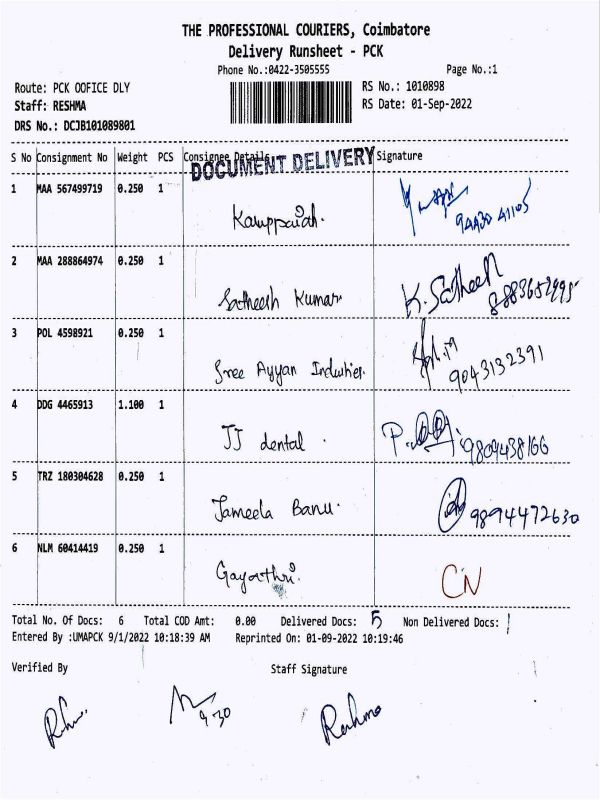 THE PROFESSIONAL COURIERS, Coimbatore
Delivery Runsheet - PCK
Phone No.:0422-3505555 Page No.:1
Route: PCK OOFICE DLY RS No.: 1010898
Staff: RESHMA RS Date: 01-Sep-2022
DRS No.: DCJB101089801
S No Consignment No Weight PCS Consignee Details Signature
DOCUMENT DELIVERY
1 MAA 567499719 0.250 1 Karuppaiah. 94430 41105
2 MAA 288864974 0.250 1 Satheesh Kumar. K. Satheesh
3 POL 4598921 0.250 1 Sree Ayyan Industries. 9043132391
4 DDG 4465913 1.100 1 JJ dental . 9809438166
5 TRZ 180304628 0.250 1 Jameela Banu. 9894472630
6 NLM 60414419 0.250 1 Gayathri. CN
Total No. Of Docs: 6 Total COD Amt: 0.00 Delivered Docs: 5 Non Delivered Docs: 1
Entered By :UMAPCK 9/1/2022 10:18:39 AM Reprinted On: 01-09-2022 10:19:46
Verified By Staff Signature
9.30 Reshma